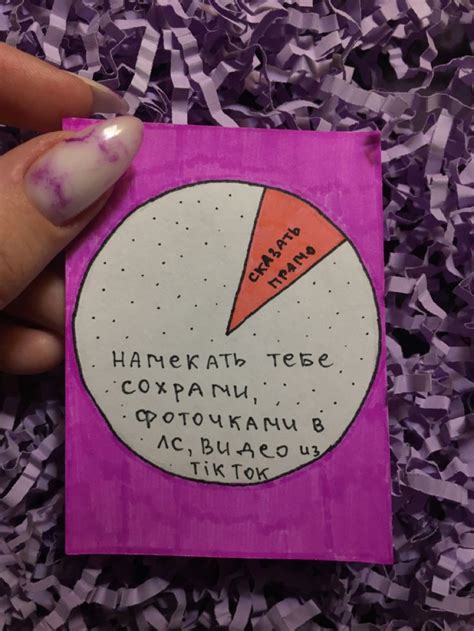 СКАЗАТЬ
ПРЯМО
НАМЕКАТЬ ТЕБЕ
СОХРАМИ,
ФОТОЧКАМИ В
ЛС, ВИДЕО ИЗ
TIKTOK